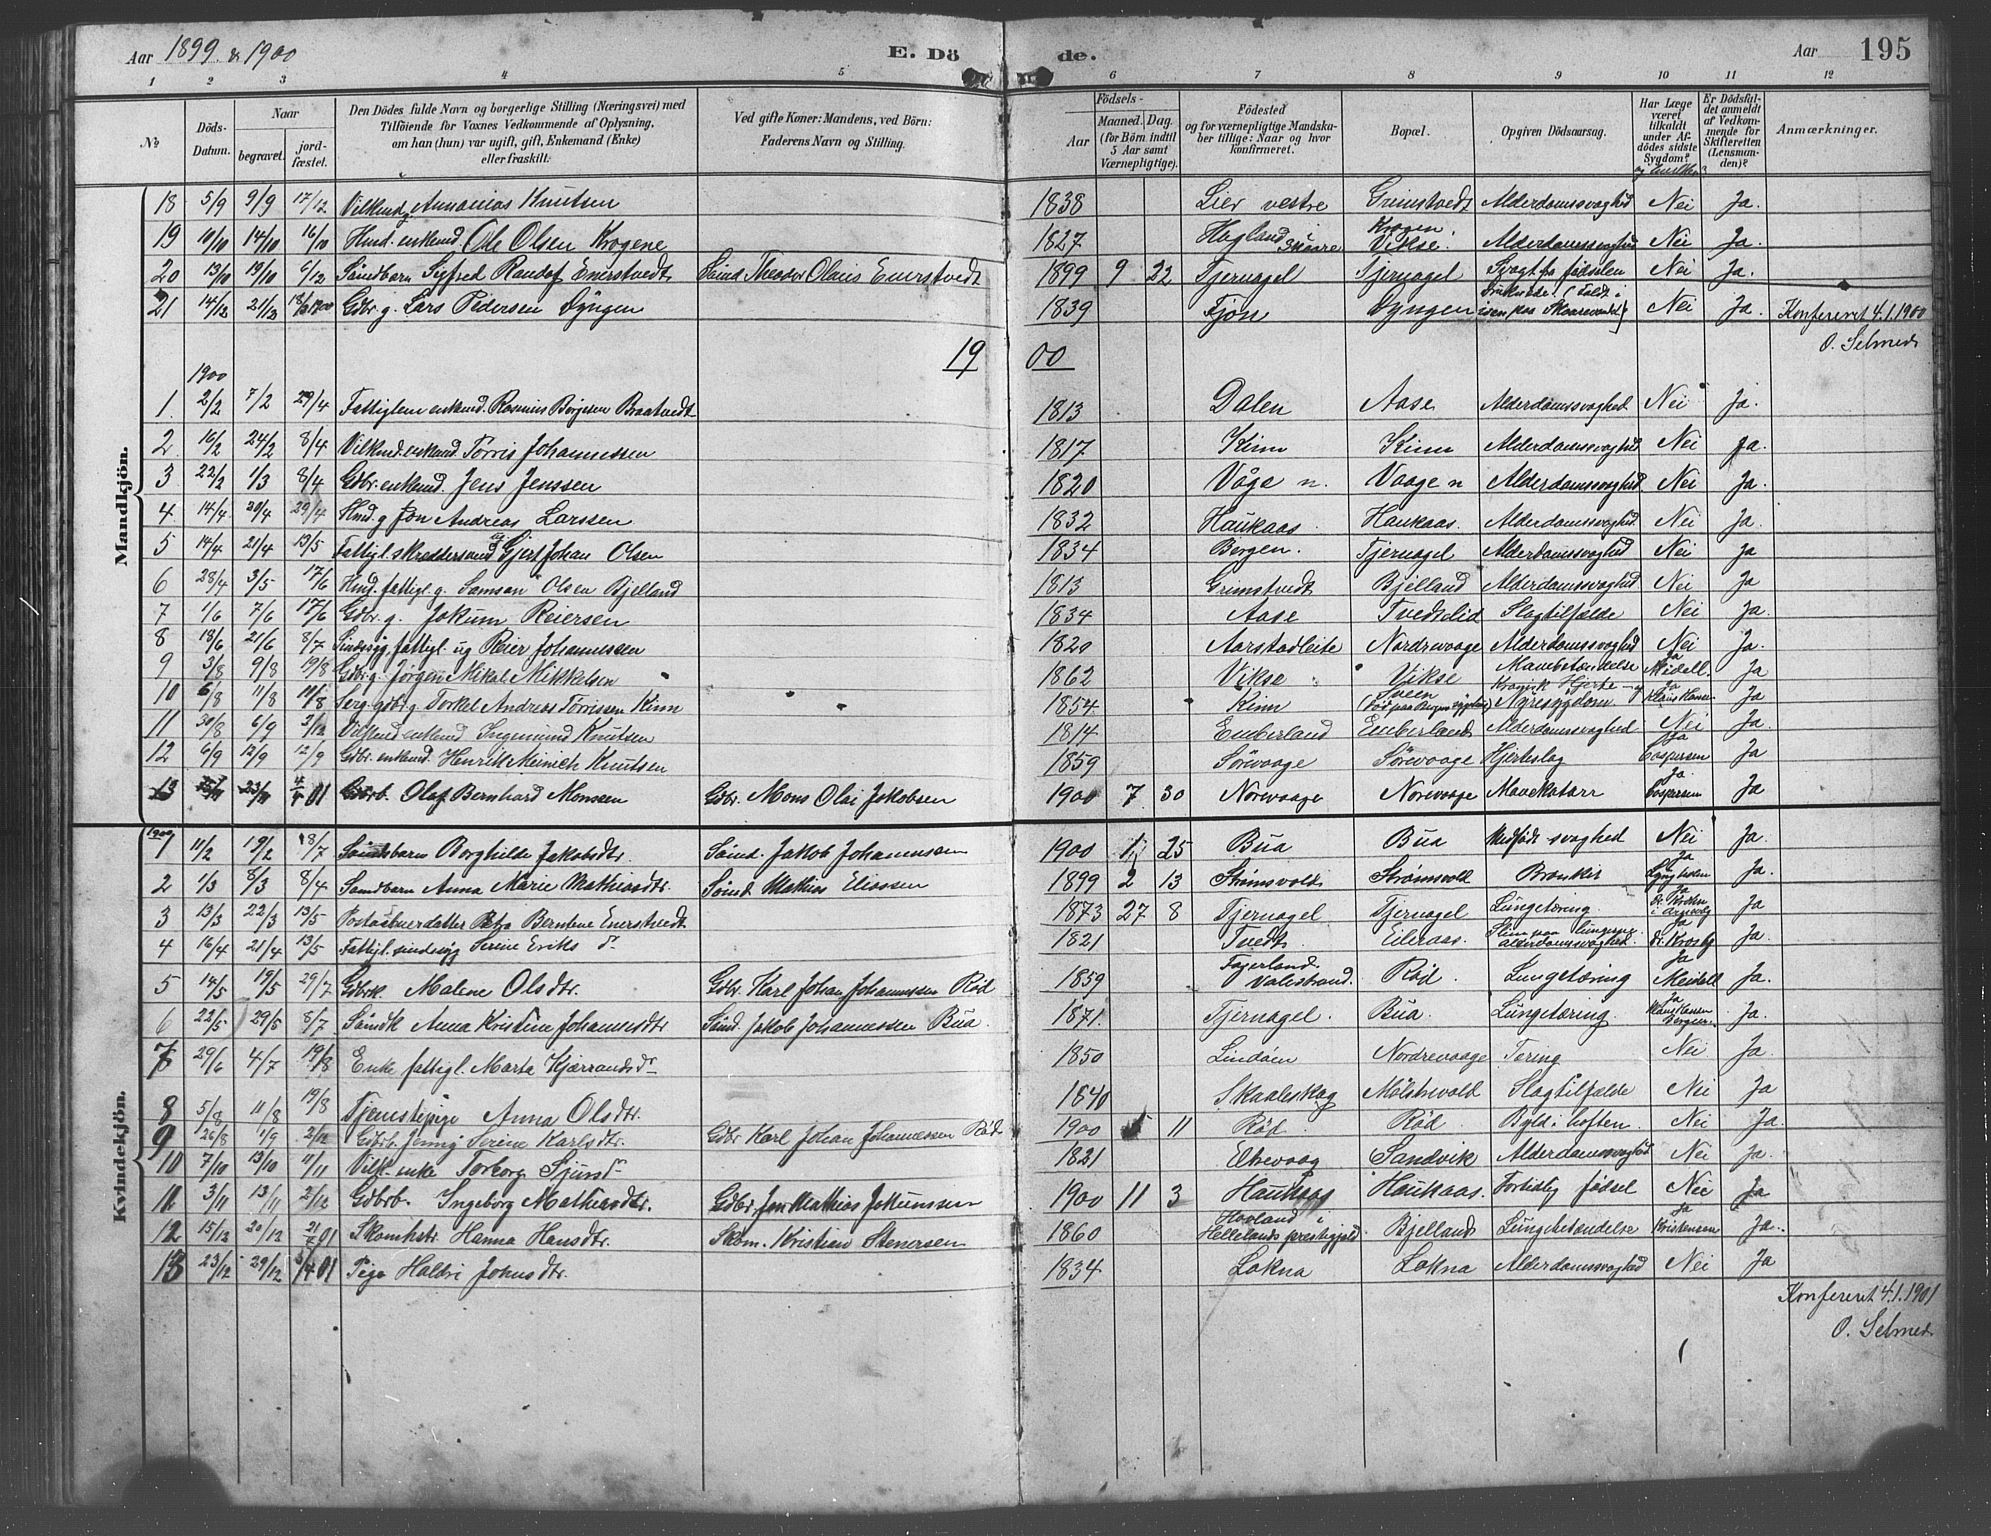 Aar 1899 & 1900 E. Dö de. Aar 195
1 2 3 4 5 6 7 8 9 10 11 12
No Döds-Datum. Naar begravet. jordfæstet. Den Dödes fulde Navn og borgerlige Stilling (Næringsvei) med Tilföiende for Voxnes Vedkommende af Oplysning, om han (hun) var ugift, gift, Enkemand (Enke) eller fraskilt. Ved gifte Koner: Mandens, ved Börn: Faderens Navn og Stilling. Födsels- Aar Maaned. Dag. (for Börn indtil 5 Aar samt Værnepligtige). Födested og for værnepligtige Mandskaber tillige: Naar og hvor konfirmeret. Bopæl. Opgiven Dödsaarsag. Har Læge været tilkaldt under Afdödes sidste Sygdom? Er Dödsfaldet anmeldt af Vedkommende for Skifteretten (Lensmanden)? Anmærkninger.
Mandkjön.
18 5/9 9/9 17/12 Ananias Knutsen 1838 Lier vestre Grimstvedt Alderdomssvaghed Nei Ja.
19 10/10 14/10 16/10 Hmd. enkemd. Ole Olsen Krogene 1827 Hagland Skaare Krogen, Vikse. Alderdomssvaghed Nei Ja.
20 13/10 19/10 6/12 Sigfred Randolf Enerstvedt Theodor Olaus Enerstvedt 1899 9 22 Tjernagel Tjernagel Svagt fra fødselen Nei Ja.
21 14/12 21/12 Gdbr. g. Lars Pedersen Dyngen 1839 Fjøn Dyngen Druknede. (Faldt i isen paa Skaarevandet) Nei Ja. Konfereret 4.1.1900
O. Selmer
19 00
1900
1. 2/2 7/2 29/4 Fattiglem enkemd. Rasmus Børgesen Braatvedt 1813 Dalen Aase Alderdomssvaghed Nei Ja.
2 16/2 24/2 8/4 enkemd Torris Johannessen 1817 Kinn Kinn Alderdomssvaghed Nei Ja.
3 22/2 1/3 8/4 Gdbr. enkemd. Jens Jenssen 1820 Våge n. Vaage n Alderdomssvaghed Nei Ja.
4 14/4 20/4 29/4 Hmd. g Jon Andreas Larssen 1832 Haukaas. Haukaas. Alderdomssvaghed Nei Ja.
5 14/4 21/4 13/5 Fattigl. skræddersvend ug Gjert Johan Olsen 1834 Bergen. Tjernagel Alderdomssvaghed Nei Ja
6 28/4 3/5 17/6 Hmd. fattigl. g. Samson Olsen Bjelland 1813 Grimstvedt Bjelland Alderdomssvaghed Nei Ja
7 1/6 7/6 17/6 Gdbr. g. Jokum Reiersen 1834 Aase Tvedtelid Slagtilfælde Nei Ja.
8 18/6 21/6 8/7 Sindssyg, fattigl. ug Reier Johannessen 1820 Aarstadleite Nordrevaage Alderdomssvaghed Nei Ja.
9 3/8 9/8 19/8 Gdbr. g. Jørgen Mikal Mikkelsen 1862 Vikse Vikse Ja Meidell. Ja
10 6/8 11/8 19/8 gdbr. g Torkel Andreas Torrissen Kinn 1854 Kinn Sveen Kronisk Hjerte- og Nyresygdom Ja Klaus Hansen Ja
11 30/8 6/9 2/12 enkemd Ingemund Knutsen 1814 Emberland Emberland Alderdomssvaghed Nei Ja
12 6/9 12/9 12/9 Gdbr. enkemd. Henrik Meinich Knutsen 1859 Sørevaage Sørevaage Hjerteslag Ja Caspersen Ja
13 23/11 4/4 01 Gdbrb. Olaf Bernhard Monsen Gdbr. Mons Olai Jakobsen 1900 7 30 Norevaage Norevaage Mavekatarr Ja Caspersen Ja
Kvindekjön.
1900
1 11/2 19/2 8/7 Borghilde Jakobsdtr. Jakob Johannessen 1900 1 25 Bua Bua Medfødt svaghed Nei Ja.
2 1/3 8/3 8/4 Anna Marie Mathiasdtr. Mathias Eliassen 1899 2 13 Strømsvold Strømsvold Bronkit Ja Lyngholm Ja.
3 13/3 22/3 13/5 Berntine Enerstvedt 1873 27 8 Tjernagel Tjernagel Lungetæring Ja
4 16/4 21/4 13/5 Fattigl. sindssyg Serine Eriks dr 1821 Tvedt. Eileraas. alderdomssvaghed. Ja
5 14/5 19/5 29/7 Gdbrk. Malene Olsdtr. Gdbr. Karl Johan Johannessen Rød 1859 Fagerland Valestrand. Rød. Lungetæring Ja Meidell Ja.
6 22/5 29/5 8/7 Anna Kristine Johannesdtr Jakob Johannessen Bua. 1871. Tjernagel. Bua. Lungetæring. Ja Klaus Hansen Bergen Ja.
7 29/6 4/7 19/8 Enke fattigl. Marta Kjærrandsdr 1850 Lindøen Nordrevaage Tæring Nei Ja.
8 5/8 11/8 19/8 Tjenestepige Anna Olsdtr. 1840 Skaaleskog Mølstrevold Slagtilfælde Nei Ja
9 26/8 1/9 2/12 Gdbrb. Jenny Serine Karlsdtr. Gdbr Karl Johan Johannessen Rød 1900 5 11 Rød. Rød. Byld i hoften. Nei Ja.
10 7/10 13/10 11/11 enke Torborg Sjursdr 1821 Eltrevaag Sandvik Alderdomssvaghed Nei Ja.
11 3/11 13/11 2/12 Gdbrb. Ingeborg Mathiasdtr. Gdbr. Jon Mathias Jokumssen 1900 11 3 Haukaas Haukaas. Fortidlig fødsel Nei Ja
12 15/12 20/12 21/7 01 Hanna Hansdtr. Skom. Kristian Stenersen 1860 Hovland i Hellelands prestegjæld Bjelland Lungebetændelse Ja Kristensen Ja.
13 23/12 29/12 Pige Haldri Johnsdtr. 1834 Lokna Lokna Alderdomssvaghed Nei Ja
Konfereret 4.1.1901
O. Selmer